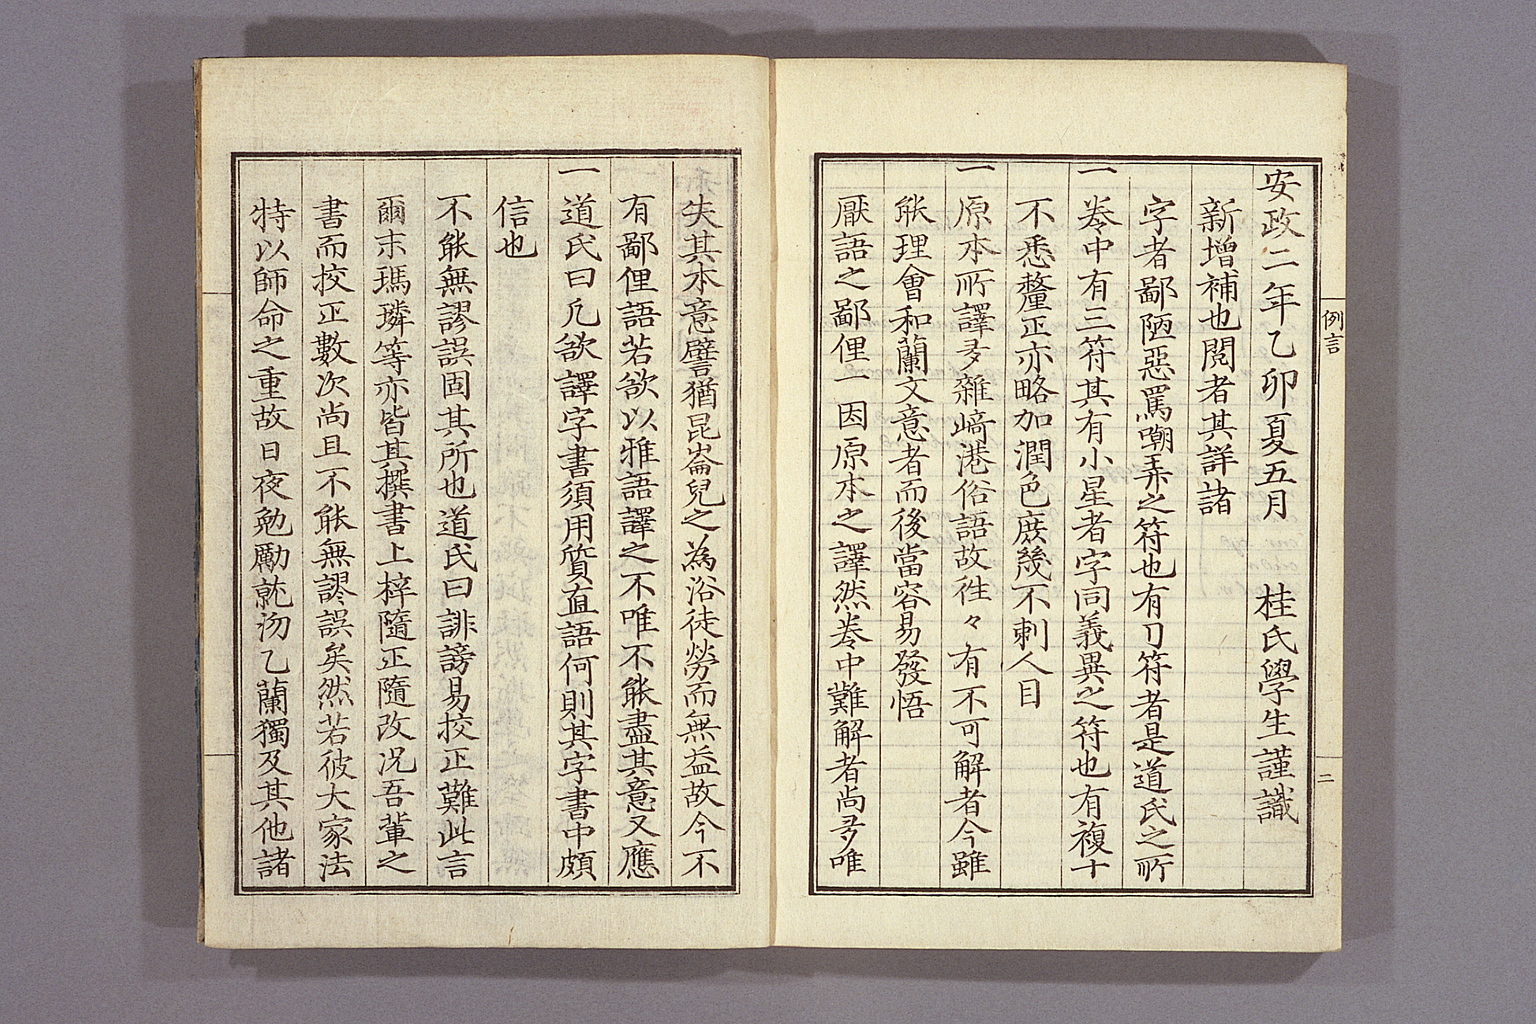 安政二年乙卯夏五月 桂氏學生謹識
新增補也閲者其詳諸
字者鄙陋惡罵嘲弄之符也有刀符者是道氏之所
一巻中有三符其有小星者字同義異之符也有複十
不悉釐正亦略加潤色庶幾不刺人目
一原本所譯多雜﨑港俗語故徃々有不可解者今雖
能理會和蘭文意者而後當容易發悟
厭語之鄙俚一因原本之譯然巻中難解者尚多唯
例言
二
失其本意譬猶昆崙兒之為浴徒勞而無益故今不
有鄙俚語若欲以雅語譯之不唯不能盡其意又應
一道氏曰凡欲譯字書須用質直語何則其字書中頗
信也
不能無謬誤固其所也道氏曰誹謗易挍正難此言
爾末瑪璘等亦皆其撰書上梓隨正隨改况吾輩之
書而挍正數次尚且不能無謬誤矣然若彼大家法
特以師命之重故日夜勉勵就沕乙蘭獨及其他諸